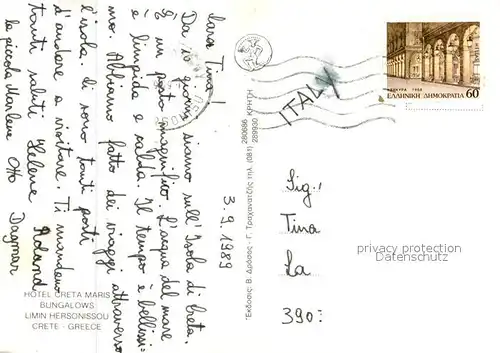 Cara Tina!
Da 10 giorni siamo sull'Isola di Creta.
È un posto magnifico. L'acqua del mare
è limpida e calda. Il tempo è bellissi-
mo. Abbiamo fatto dei viaggi attraverso
l'isola. Ci sono tanti posti
d'andare a visitare. Ti mandano
tanti saluti Helene Roland
la piccola Marlene Otto Dagmar
3.9.1989
HOTEL CRETA MARIS
BUNGALOWS
LIMIN HERSONISSOU
CRETE - GREECE
Ἔκδοσις: Β. Δρόσος - Γ. Τραχανατζῆς τηλ. (081) 280686 ΚΡΗΤΗ
289930
ITALY
1988
ΕΛΛΗΝΙΚΗ ΔΗΜΟΚΡΑΤΙΑ 60
Sig.
Tina
La
390
privacy protection
Datenschutz